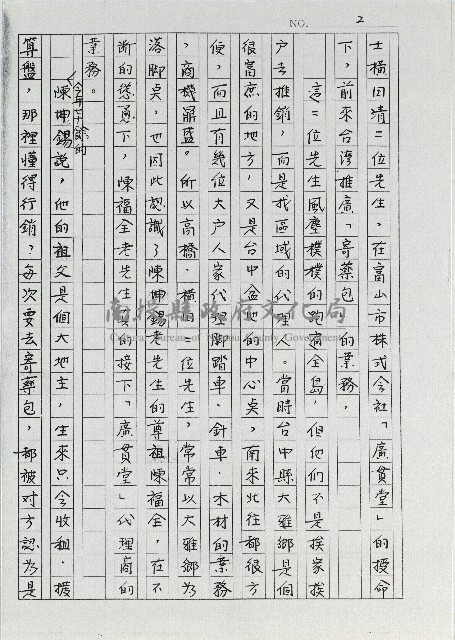 NO. 2
士橫田清二位先生，在富山市株式会社「廣貫堂」的授命
下，前來台灣推廣「寄藥包」的業務，
這二位先生風塵樸樸的跑遍全島，但他们不是挨家挨
户去推銷，而是找區域的代理人。當時台中縣大雅鄉是個
很富庶的地方，又是台中盆地的中心点，南來北往都很方
便，而且有幾位大户人家代理脚踏車．針車．木材的業務
，商機鼎盛。所以高橋．橫田二位先生，常常以大雅鄉為
落脚点，也因此認識了陳坤錫老先生的尊祖陳福全，在不
断的慫恿下，陳福全老先生真的接下「廣貫堂」代理商的
業務。
今年七十餘的
陳坤錫説，他的祖父是個大地主，生來只会收租．撥
算盤，那裡懂得行銷？每次要去寄葯包，都被対方認為是
南投縣政府文化局
Cultural Bureau of Nantou County Government